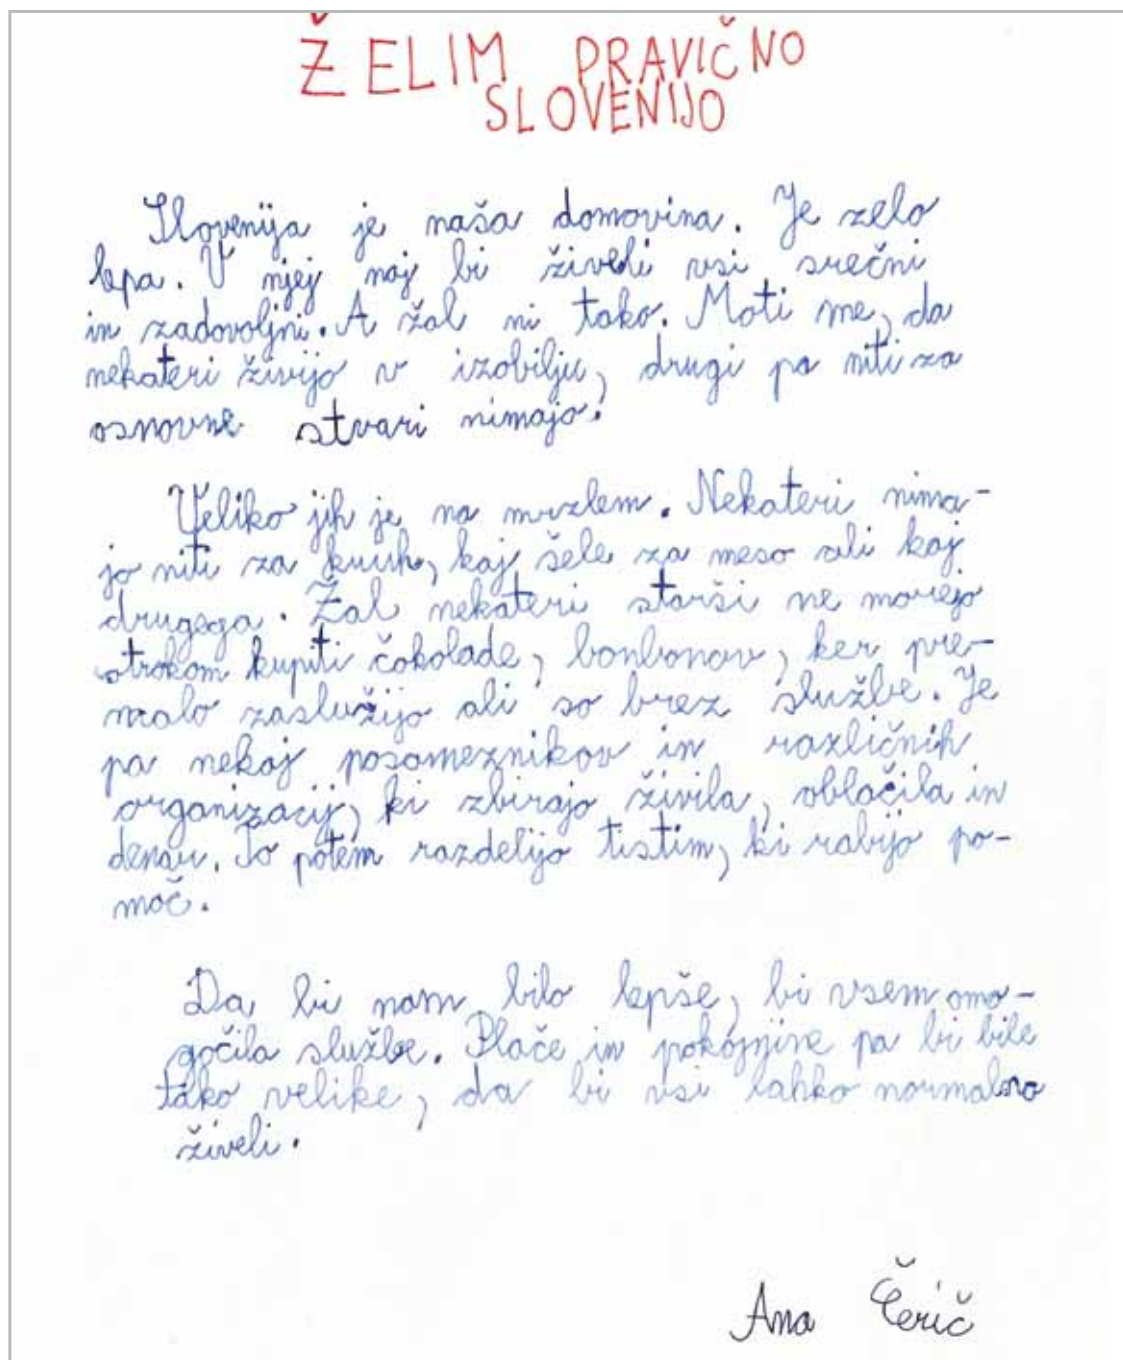 ŽELIM PRAVIČNO
SLOVENIJO
Slovenija je naša domovina. Je zelo
lepa. V njej naj bi živeli vsi srečni
in zadovoljni. A žal ni tako. Moti me, da
nekateri živijo v izobilju, drugi pa niti za
osnovne stvari nimajo.
Veliko jih je na mrzlem. Nekateri nima-
jo niti za kruh, kaj šele za meso ali kaj
drugega. Žal nekateri starši ne morejo
otrokom kupiti čokolade, bonbonov, ker pre-
malo zaslužijo ali so brez službe. Je
pa nekaj posameznikov in različnih
organizacij, ki zbirajo živila, oblačila in
denar. To potem razdelijo tistim, ki rabijo po-
moč.
Da bi nam bilo lepše, bi vsem omo-
gočila službe. Plače in pokojnine pa bi bile
tako velike, da bi vsi lahko normalno
živeli.
Ana Čerič